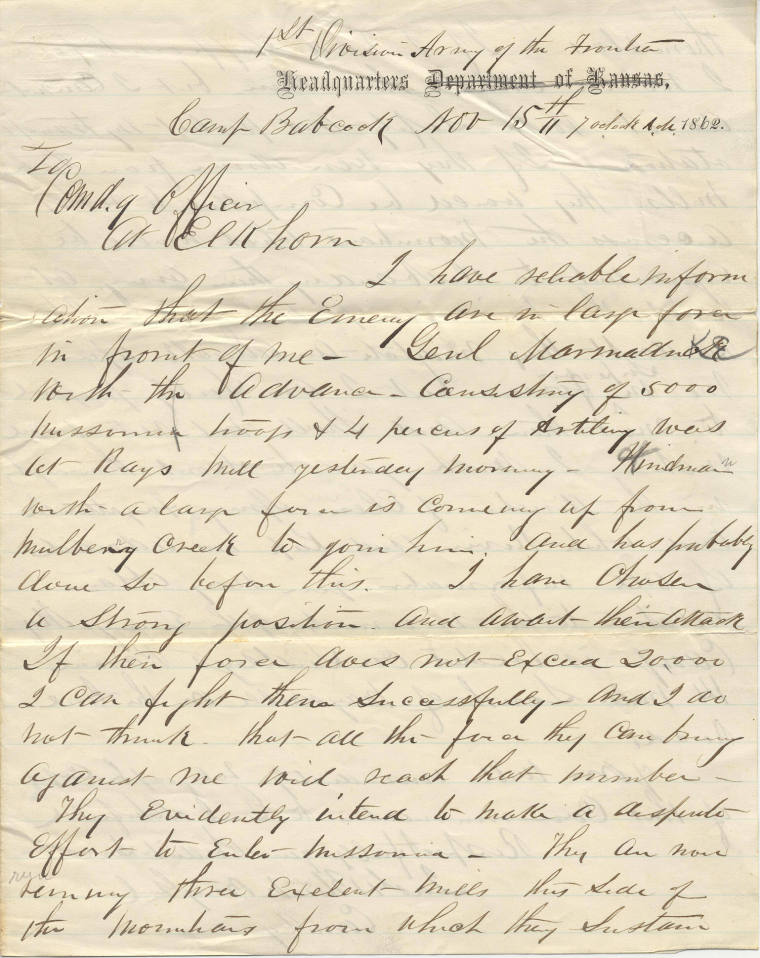 1st Division Army of the Frontier
Headquarters Department of Kansas,
Camp Babcock Nov 15th 7 oclock A.M. 1862.
To
Comd.g Officer
At Elkhorn
I have reliable inform
ation that the Enemy are in large force
in front of me - Genl Marmaduke
with the Advance - Consisting of 5000
Missouria troops & 4 pieces of Artilery was
at Rays Mill yesterday morning - Hindman
with a large force is comeing up from
Mulberry Creek to join him. And has probably
done so before this. I have Chosen
a Strong position. And await their Attack
If their force does not Exceed 20.000
I can fight them Sucessfully - and I do
not think that all the force they can bring
against me will reach that number -
They Evidently intend to make a desperate
Effort to Enter Missouria - They are now
runing three Exelent Mills this Side of
the Mountains from which they Sustain